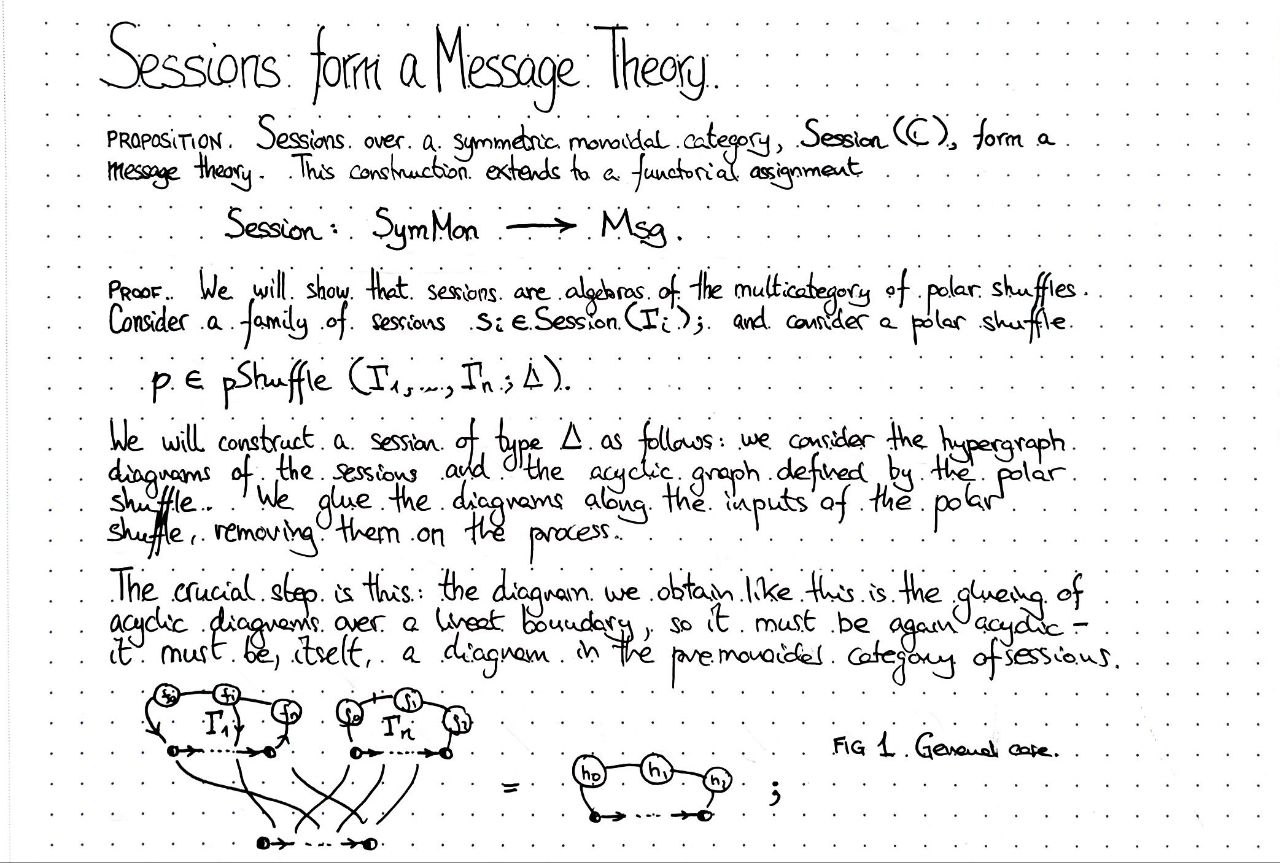 Sessions form a Message Theory.
PROPOSITION. Sessions over a symmetric monoidal category, Session(ℂ), form a
message theory. This construction extends to a functorial assignment
Session: SymMon ⟶ Msg.
PROOF. We will show that sessions are algebras of the multicategory of polar shuffles.
Consider a family of sessions sᵢ ∈ Session(Γᵢ); and consider a polar shuffle
p ∈ pShuffle (Γ₁,...,Γₙ; Δ).
We will construct a session of type Δ as follows: we consider the hypergraph
diagrams of the sessions and the acyclic graph defined by the polar
shuffle. We glue the diagrams along the inputs of the polar
shuffle, removing them on the process.
The crucial step is this: the diagram we obtain like this is the glueing of
acyclic diagrams over a linear boundary, so it must be again acyclic –
it must be, itself, a diagram in the premonoidal category of sessions.
f₀ f₁ fₙ g₀ g₁ g₂
Γ₁ Γₙ
FIG 1. General case.
= h₀ h₁ ;